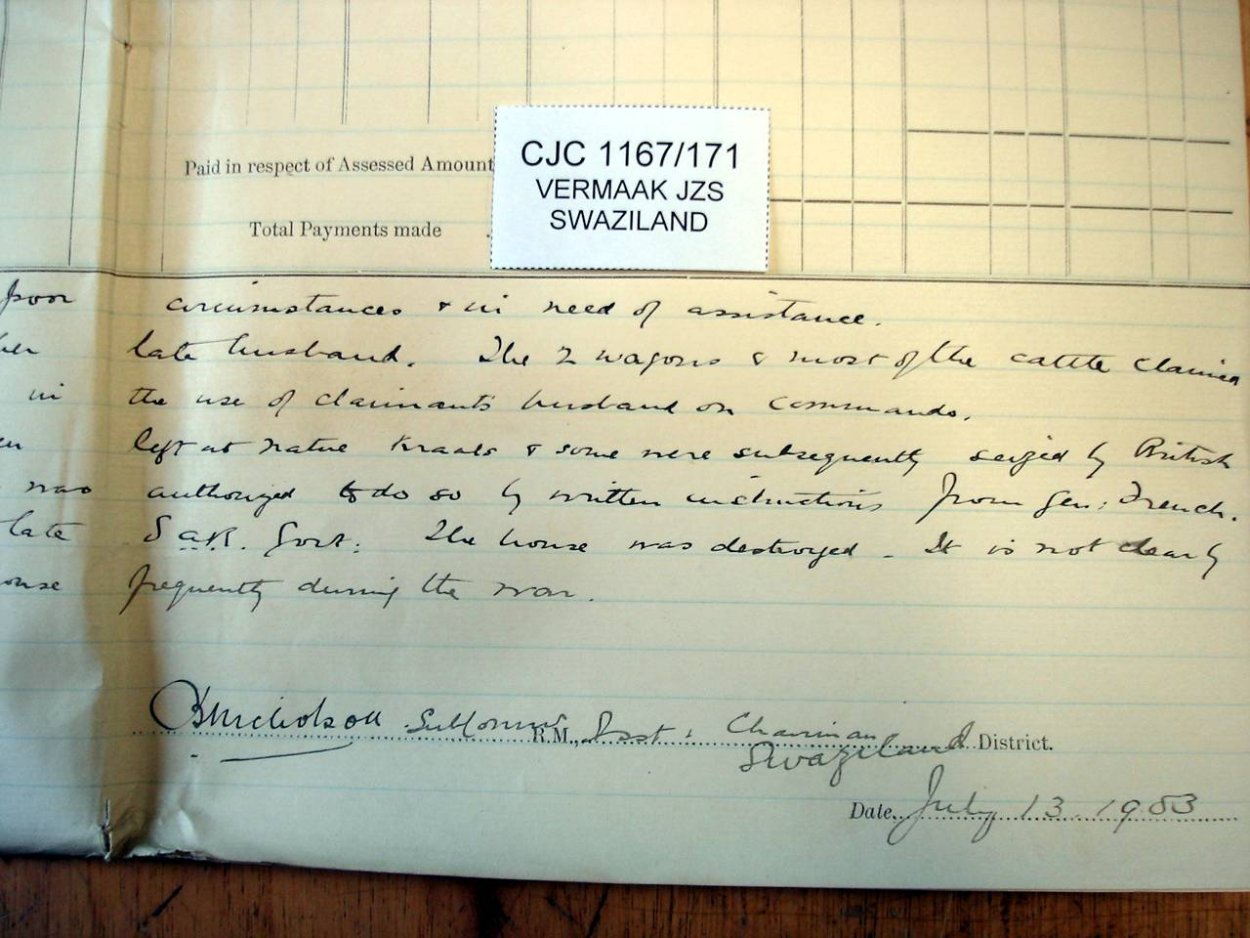 Paid in respect of Assessed Amount
Total Payments made
CJC 1167/171
VERMAAK JZS
SWAZILAND
poor circumstances & in need of assistance.
her late husband. The 2 wagons & most of the cattle claimed
in the use of claimant's husband on commando.
left at native Kraals & some were subsequently seized by British
was authorized to do so by written instructions from Gen: French.
late S.A.R. Govt: The house was destroyed. It is not clearly
frequently during the war.
Nicholson R.M., Asst: Chairman
Swaziland District.
Date July 13. 1903